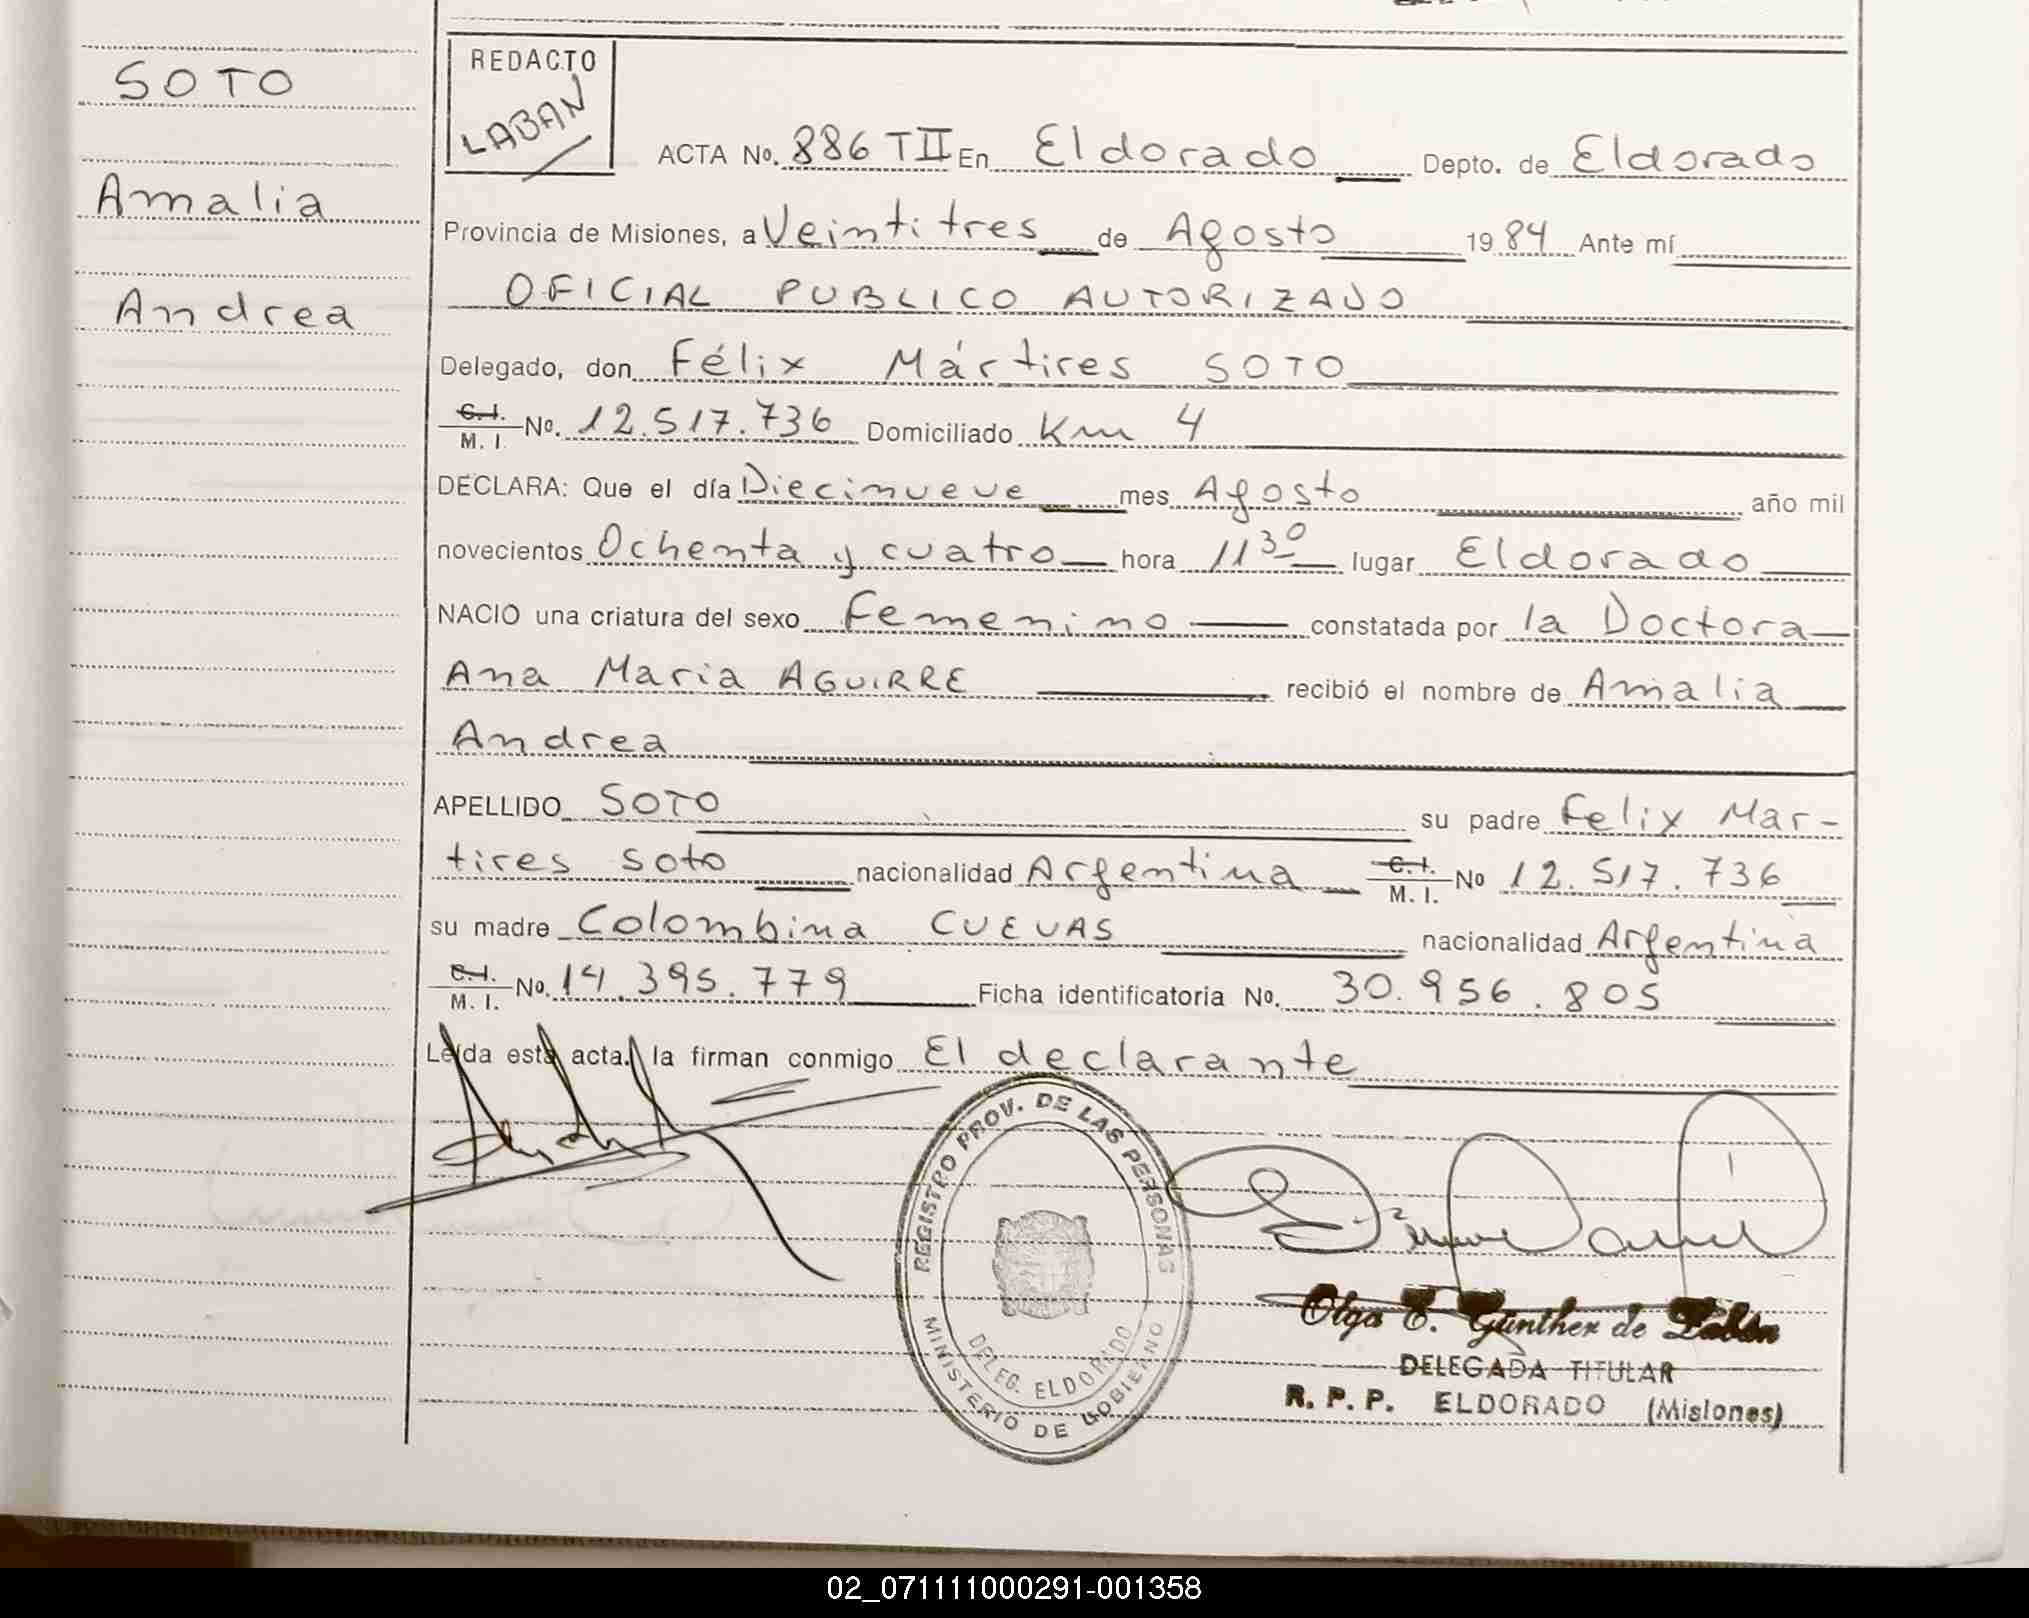 SOTO
Amalia
Andrea
REDACTO
LABAN
ACTA No. 886 TII En Eldorado Depto. de Eldorado
Provincia de Misiones, a Veintitres de Agosto 1984 Ante mí
OFICIAL PUBLICO AUTORIZADO
Delegado, don Félix Mártires SOTO
C.I. M.I. No. 12.517.736 Domiciliado Km 4
DECLARA: Que el día Diecinueve mes Agosto año mil
novecientos Ochenta y cuatro hora 11 30 lugar Eldorado
NACIO una criatura del sexo Femenino constatada por la Doctora
Ana Maria AGUIRRE recibió el nombre de Amalia
Andrea
APELLIDO SOTO su padre Felix Mar-
tires Soto nacionalidad Argentina C.I. M.I. No 12.517.736
su madre Colombina CUEVAS nacionalidad Argentina
C.I. M.I. No. 14.395.779 Ficha identificatoria No. 30.956.805
Leída esta acta, la firman conmigo El declarante
REGISTRO PROV. DE LAS PERSONAS
DELEG. ELDORADO
MINISTERIO DE GOBIERNO
Olga E. Günther de Labán
DELEGADA TITULAR
R. P. P. ELDORADO (Misiones)
02_071111000291-001358